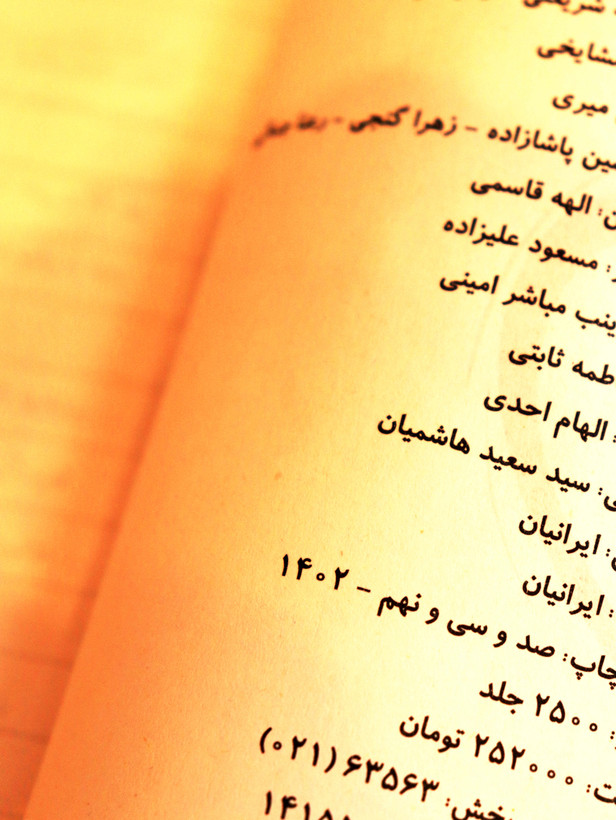 شریعتی
مشایخی
میری
پاشازاده - زهرا گنجی -
الهه قاسمی
: مسعود علیزاده
مباشر امینی
ثابتی
: الهام احدی
: سید سعید هاشمیان
: ایرانیان
: ایرانیان
چاپ: صد و سی و نهم - ۱۴۰۲
: ۲۵۰۰ جلد
: ۲۵۲۰۰۰ تومان
پخش: ۶۳۵۶۳ (۰۲۱)